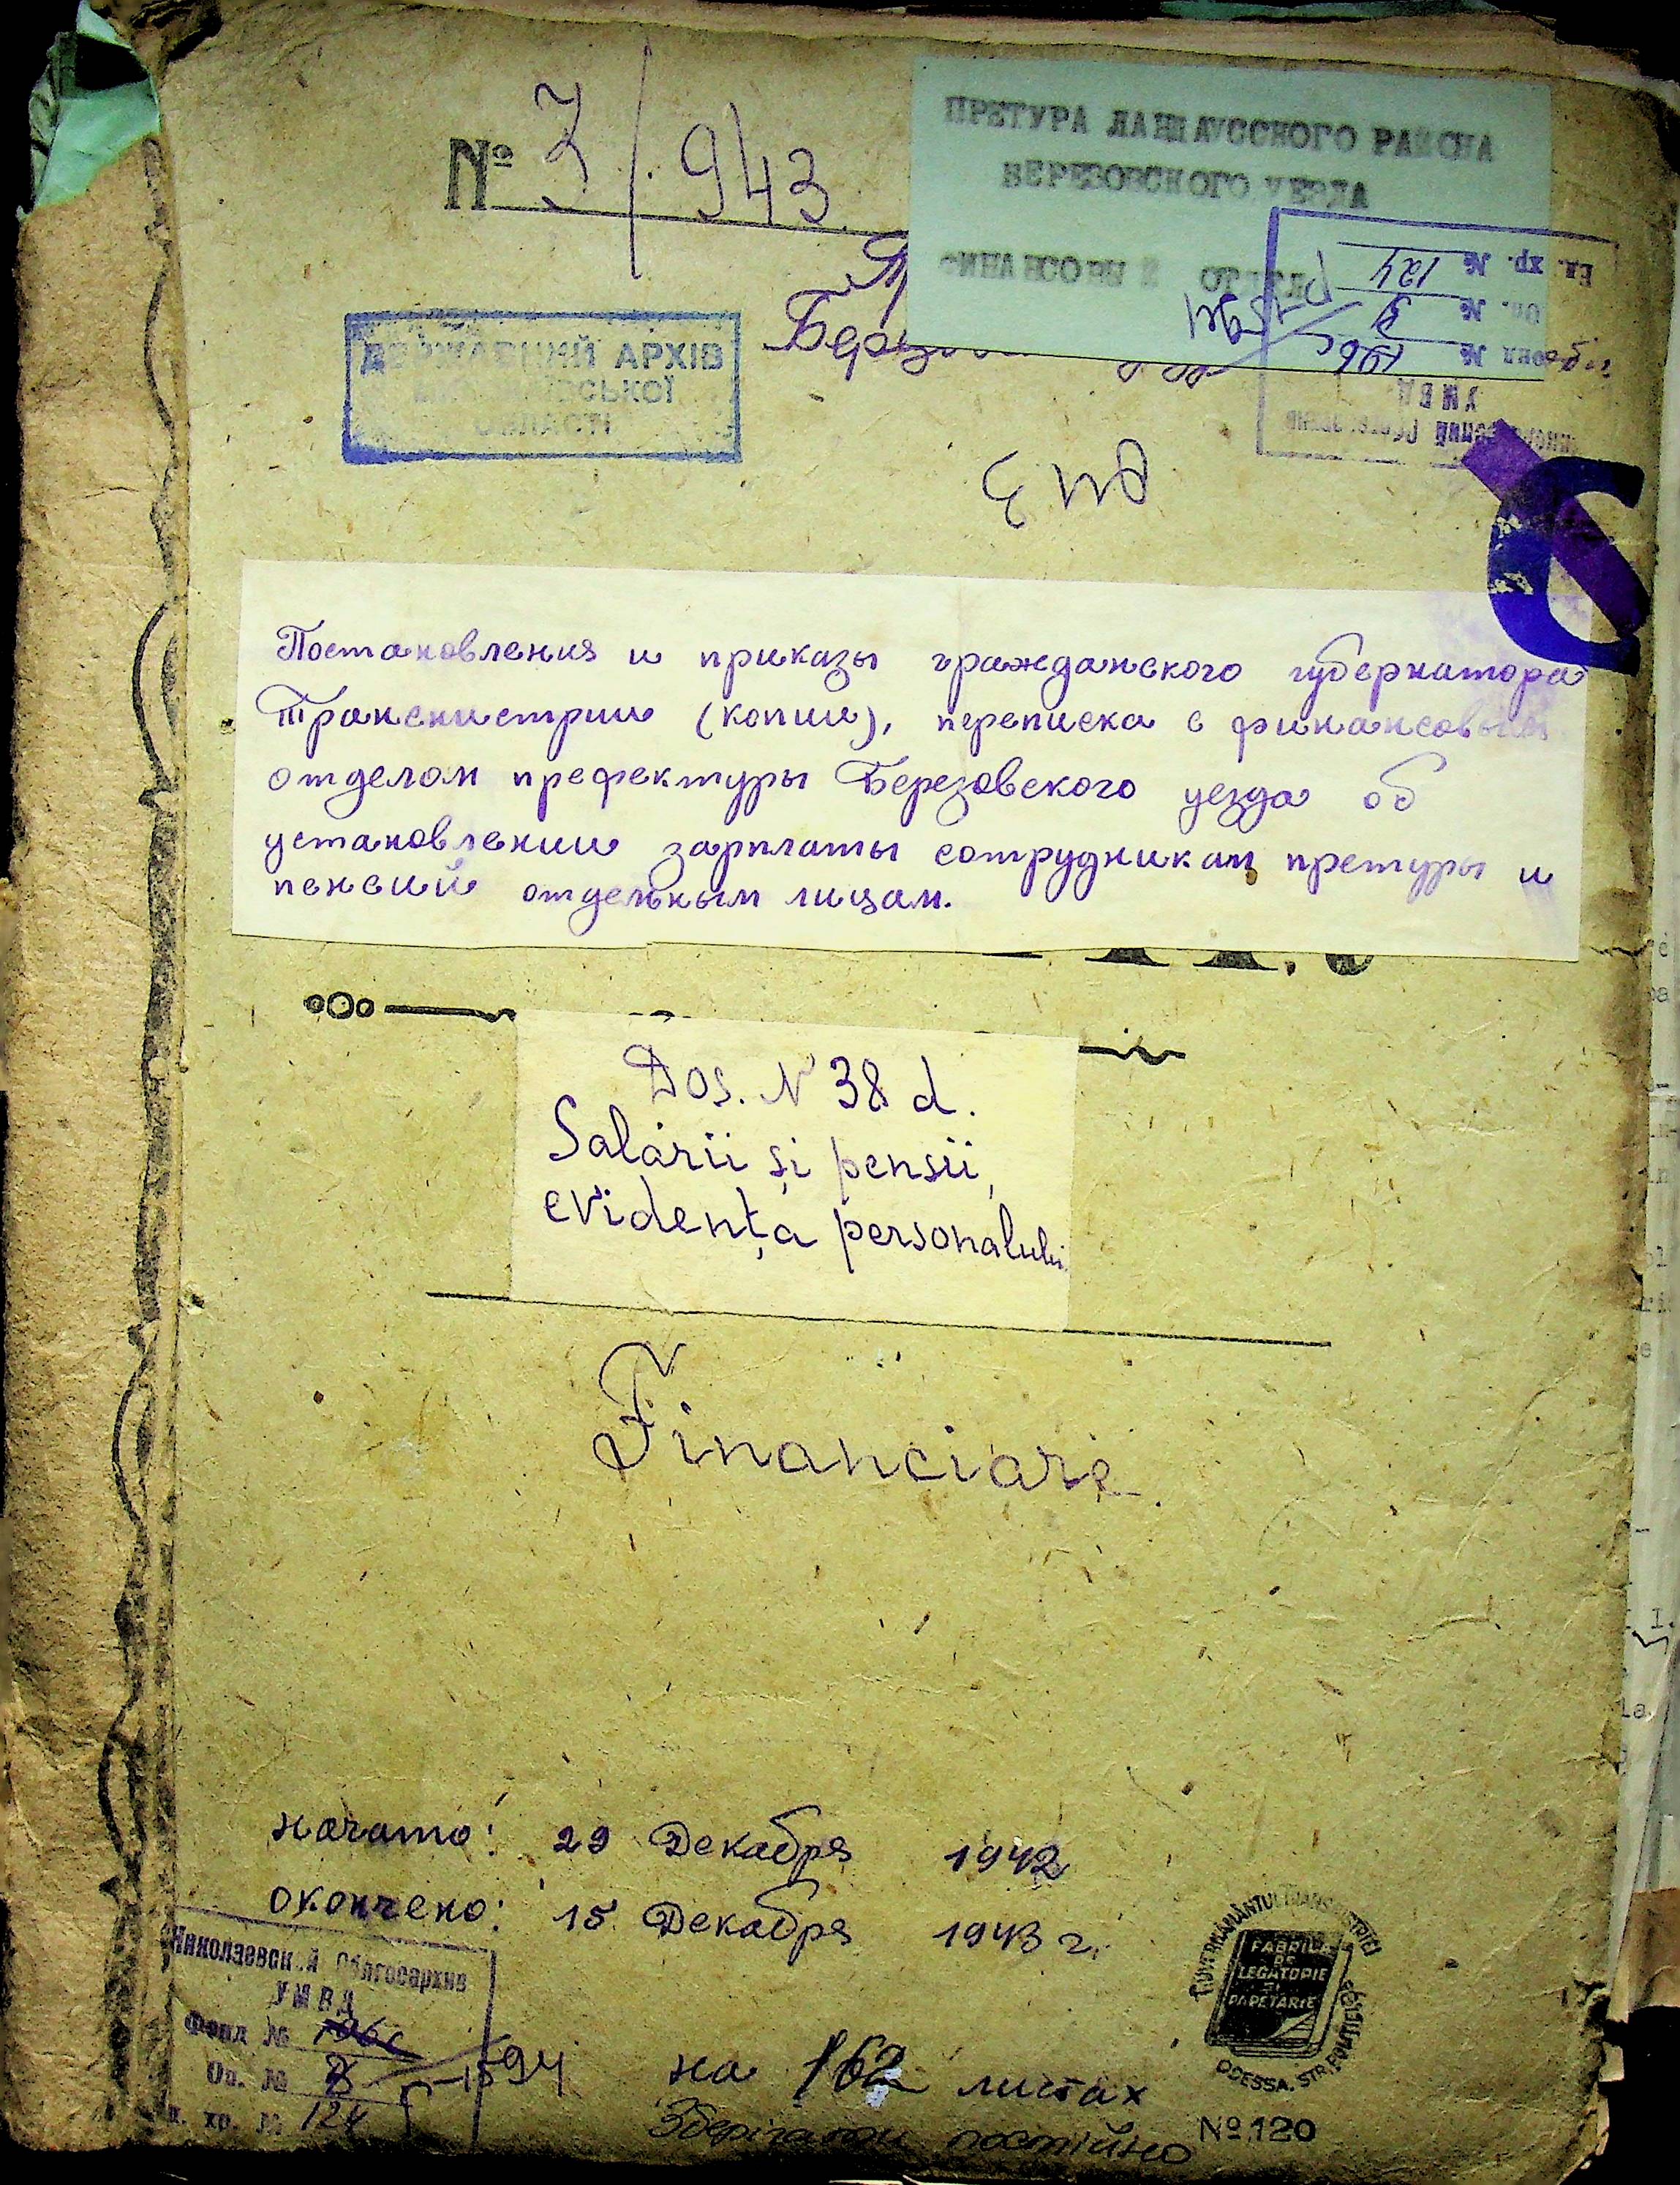 № 7/943
ПРЕТУРА ЛАНДАУССКОГО РАЙОНА
БЕРЕЗОВСКОГО УЕЗДА
ФИНАНСОВЫЙ ОТДЕЛ
Ед. хр. № 124
Оп. №
Фонд № 196с
УМВД
ДЕРЖАВНИЙ АРХІВ
МИКОЛАЇВСЬКОЇ
ОБЛАСТІ
С
Постановления и приказы гражданского губернатора
Транснистрии (копии), переписка с финансовым
отделом префектуры Березовского уезда об
установлении зарплаты сотрудникам претуры и
пенсий отдельным лицам.
Dos. N 38 d.
Salarii și pensii,
evidența personalului
Financiare.
начато: 29 Декабря 1942
окончено: 15 Декабря 1943 г.
Николаевский Облгосархив
УМВД
Фонд № 196с
Оп. № 8 Р-1594
Ед. хр. № 124
на 162 листах
Зберігати постійно
GUVERNĂMÂNTUL TRANSNISTRIEI
FABRICA
DE
LEGĂTORIE
ȘI
PAPETĂRIE
ODESSA. STR.
№ 120